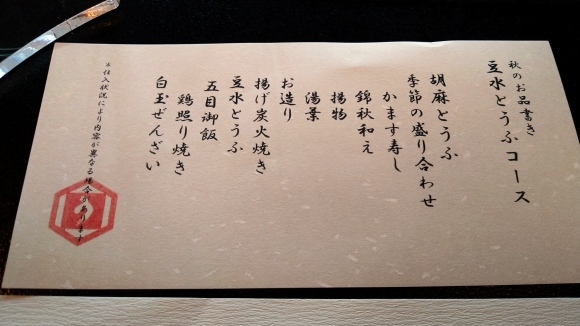 秋のお品書き
豆水とうふコース
胡麻とうふ
季節の盛り合わせ
かます寿し
錦秋和え
揚物
湯葉
お造り
揚げ炭火焼き
豆水とうふ
五目御飯
鶏照り焼き
白玉ぜんざい
※仕入状況により内容が異なる場合があります